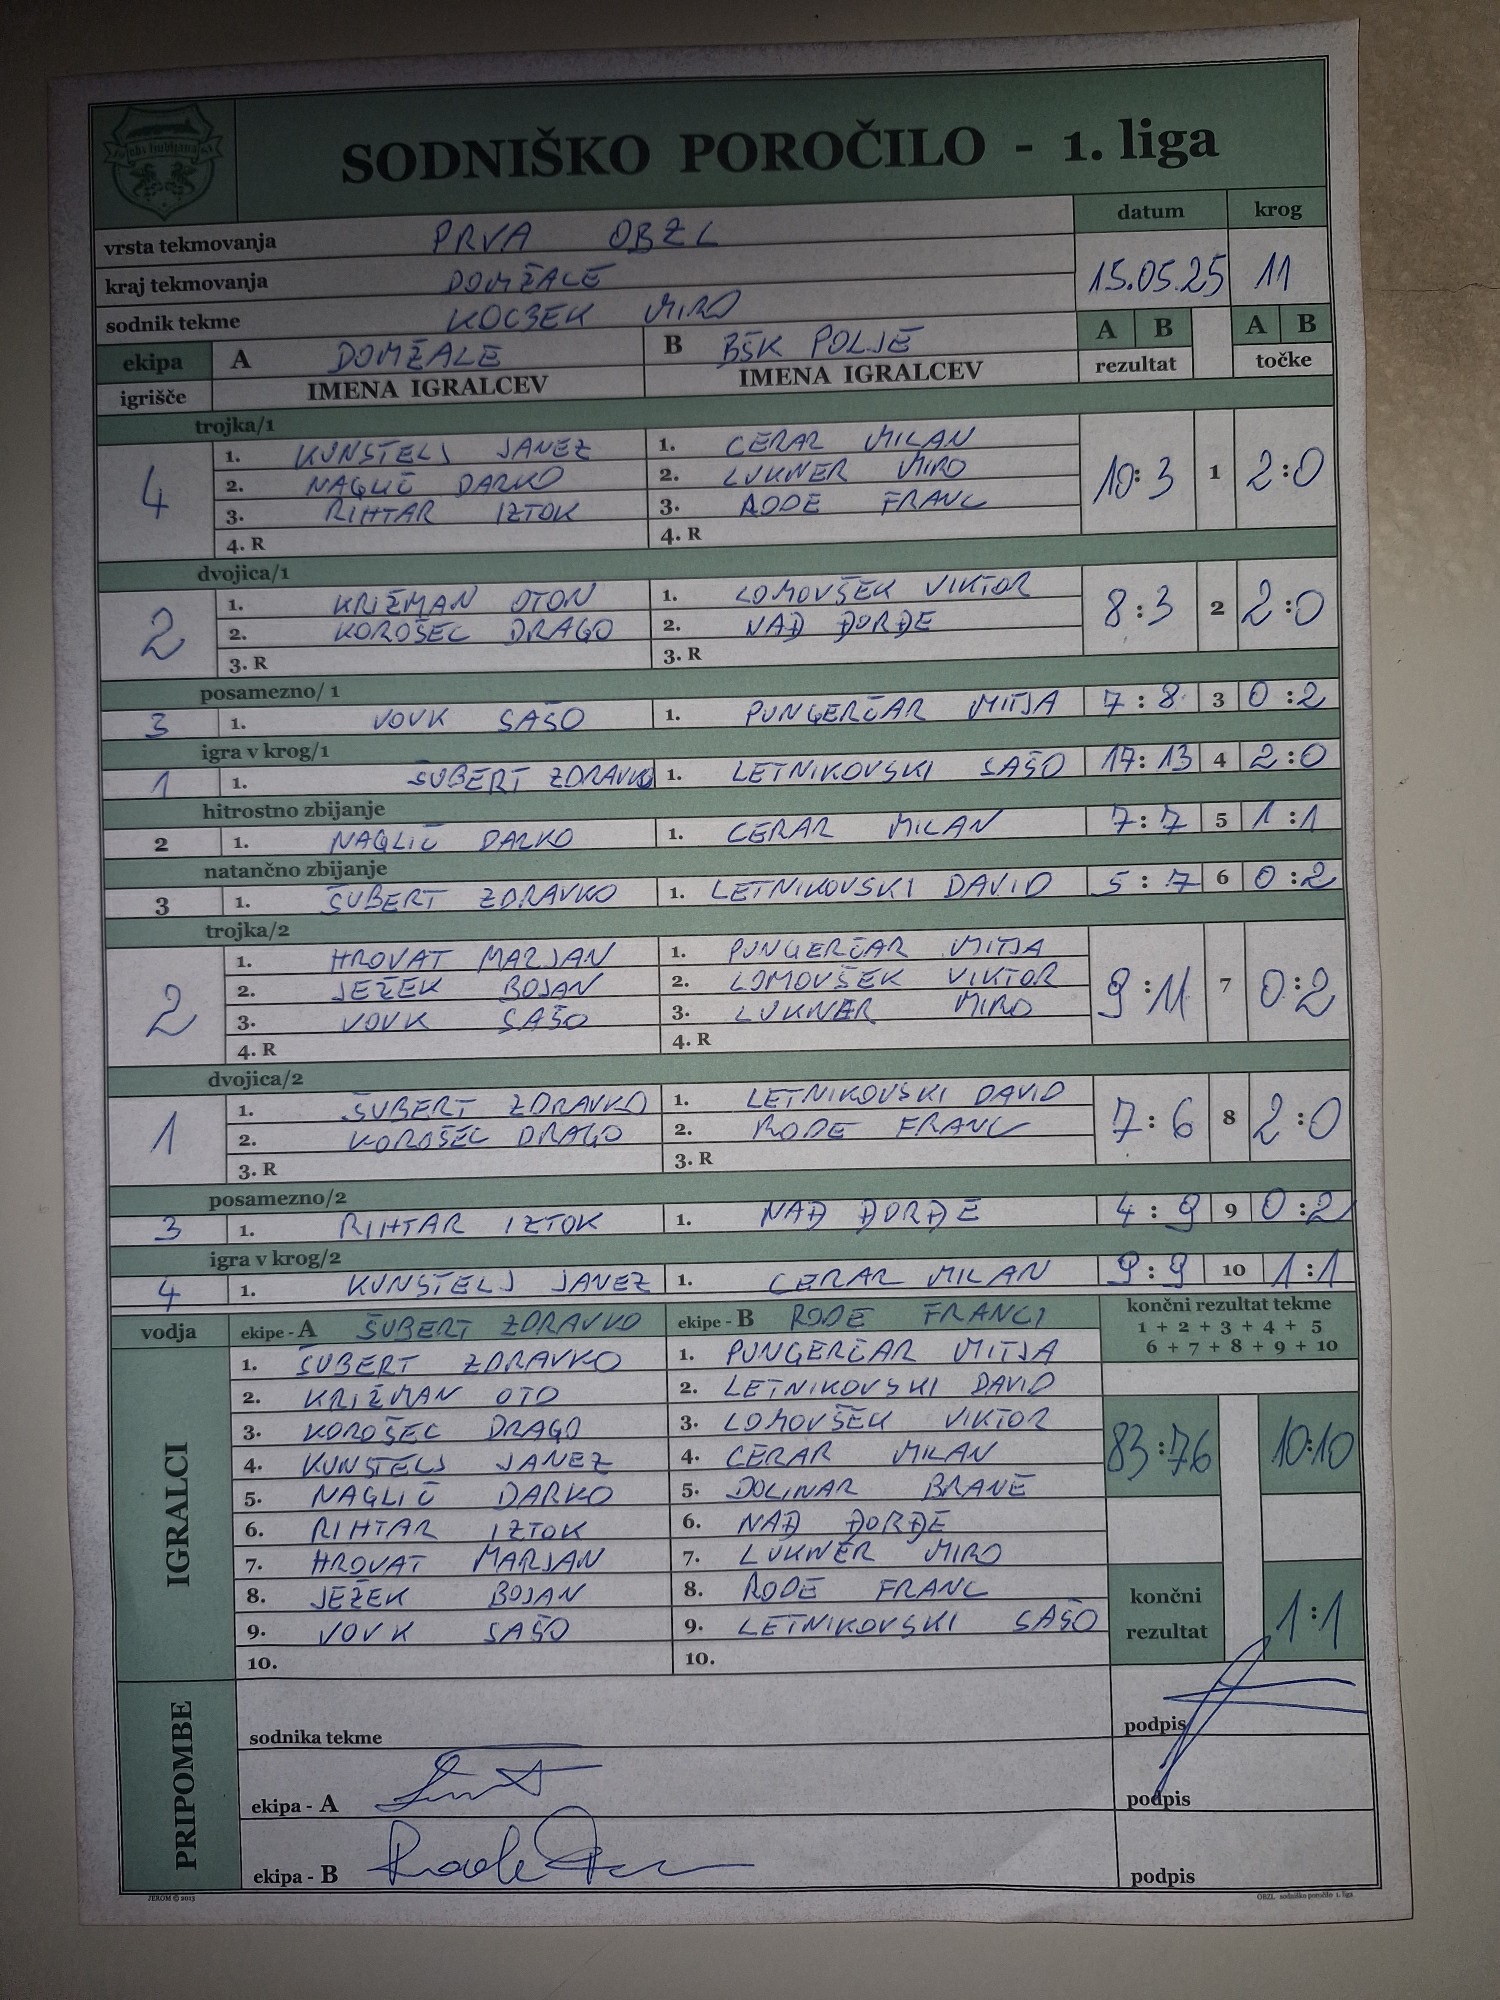 SODNIŠKO POROČILO - 1. liga
vrsta tekmovanja PRVA OBZL datum krog
kraj tekmovanja DOMŽALE 15.05.25 11
sodnik tekme KOCBEK MIRO
ekipa A DOMŽALE B BŠK POLJE A B A B
igrišče IMENA IGRALCEV IMENA IGRALCEV rezultat točke
trojka/1
4 1. KUNSTELJ JANEZ 1. CERAR MILAN 10:3 1 2:0
2. NAGLIČ DARKO 2. LUKNER MIRO
3. RIHTAR IZTOK 3. RODE FRANC
4. R 4. R
dvojica/1
2 1. KRIŽMAN OTON 1. LOMOVŠEK VIKTOR 8:3 2 2:0
2. KOROŠEC DRAGO 2. NAĐ ĐORĐE
3. R 3. R
posamezno/ 1
3 1. VOVK SAŠO 1. PUNGERČAR MITJA 7:8 3 0:2
igra v krog/1
1 1. ŠUBERT ZDRAVKO 1. LETNIKOVSKI SAŠO 17:13 4 2:0
hitrostno zbijanje
2 1. NAGLIČ DARKO 1. CERAR MILAN 7:7 5 1:1
natančno zbijanje
3 1. ŠUBERT ZDRAVKO 1. LETNIKOVSKI DAVID 5:7 6 0:2
trojka/2
2 1. HROVAT MARJAN 1. PUNGERČAR MITJA 9:11 7 0:2
2. JEŽEK BOJAN 2. LOMOVŠEK VIKTOR
3. VOVK SAŠO 3. LUKNER MIRO
4. R 4. R
dvojica/2
1 1. ŠUBERT ZDRAVKO 1. LETNIKOVSKI DAVID 7:6 8 2:0
2. KOROŠEC DRAGO 2. RODE FRANC
3. R 3. R
posamezno/2
3 1. RIHTAR IZTOK 1. NAĐ ĐORĐE 4:9 9 0:2
igra v krog/2
4 1. KUNSTELJ JANEZ 1. CERAR MILAN 9:9 10 1:1
vodja ekipe - A ŠUBERT ZDRAVKO ekipe - B RODE FRANCI končni rezultat tekme
1 + 2 + 3 + 4 + 5
6 + 7 + 8 + 9 + 10
IGRALCI
1. ŠUBERT ZDRAVKO 1. PUNGERČAR MITJA
2. KRIŽMAN OTO 2. LETNIKOVSKI DAVID
3. KOROŠEC DRAGO 3. LOMOVŠEK VIKTOR 83:76 10:10
4. KUNSTELJ JANEZ 4. CERAR MILAN
5. NAGLIČ DARKO 5. DOLINAR BRANE
6. RIHTAR IZTOK 6. NAĐ ĐORĐE
7. HROVAT MARJAN 7. LUKNER MIRO
8. JEŽEK BOJAN 8. RODE FRANC končni
9. VOVK SAŠO 9. LETNIKOVSKI SAŠO rezultat 1:1
10. 10.
PRIPOMBE
sodnika tekme podpis
ekipa - A podpis
ekipa - B podpis
JEROM © 2013 OBZL sodniško poročilo 1. liga